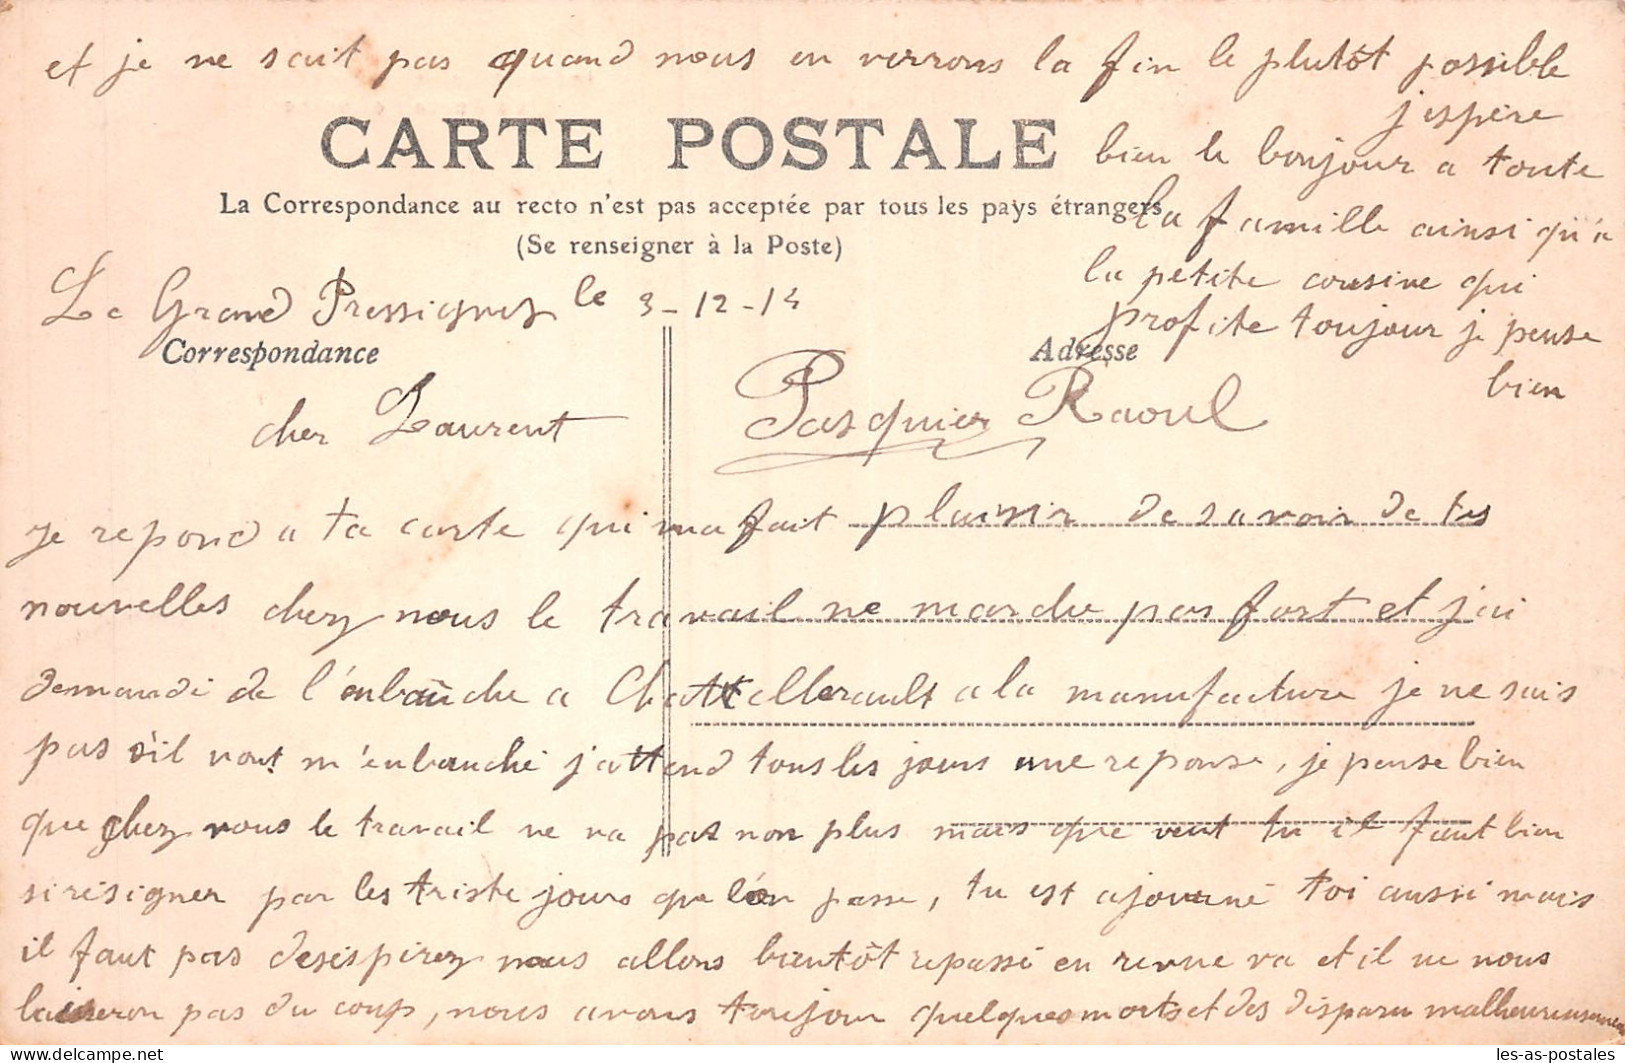 et je ne sait pas quand nous en verrons la fin le plutôt possible
j'espère
CARTE POSTALE
bien le bonjour a toute
La Correspondance au recto n'est pas acceptée par tous les pays étrangers
la famille ainsi qu'a
(Se renseigner à la Poste)
la petite cousine qui
Le Grand Pressigny le 3-12-14
profite toujour je pense
Correspondance
Adresse
bien
cher Laurent
Pasquier Raoul
je repond a ta carte qui ma fait plaisir de savoir de tes
nouvelles chez nous le travail ne marche pas fort et j'ai
demandé de l'enbauche a Chattellerault a la manufacture je ne sais
pas s'il vont m'enbauché j'attend tous les jours une reponse, je pense bien
que chez vous le travail ne va pas non plus mais que veut tu il faut bien
si résigner par les triste jours que l'on passe, tu est ajourné toi aussi mais
il faut pas desespirez nous allons bientôt repassé en revue va et il ne nous
laisseron pas du coup, nous avons toujour quelques morts et des disparu malheureusement
les-as-postales